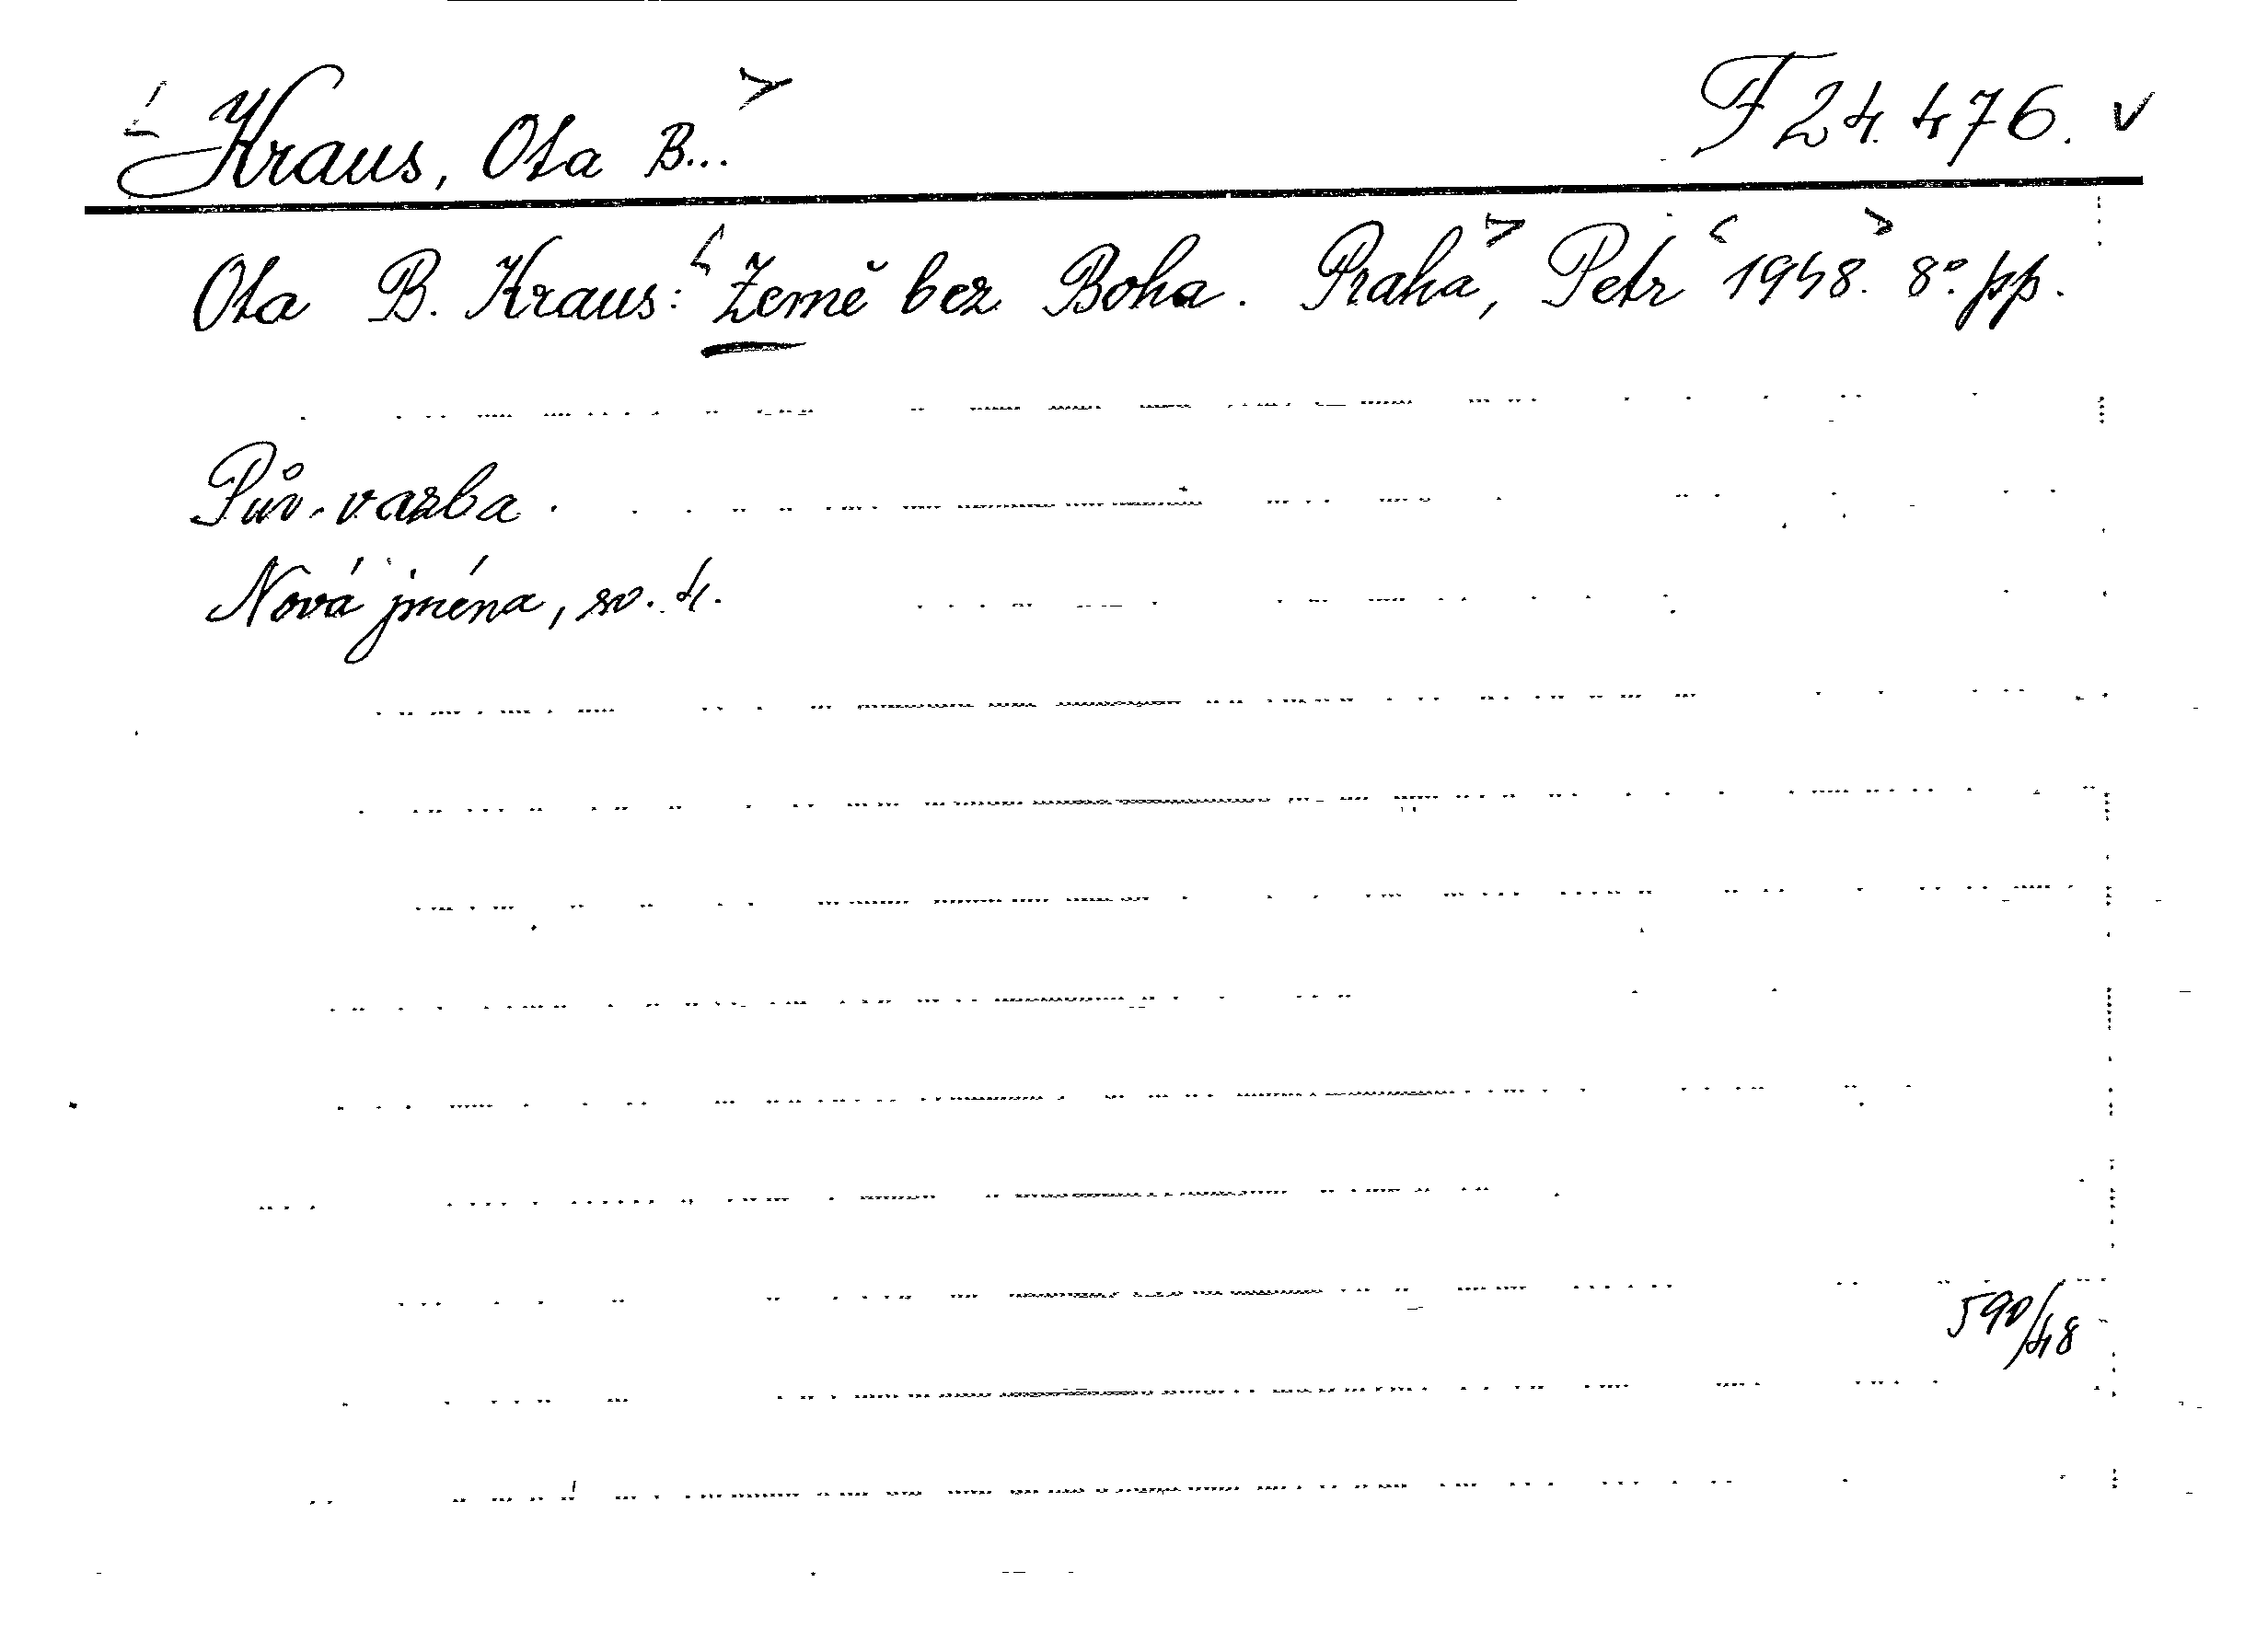 < Kraus, Ota B... > F 24.476. v
Ota B. Kraus: <Země bez Boha. Praha>, Petr <1948.> 8° pp.
Pův. vazba.
Nová jména, sv. 4.
590/48